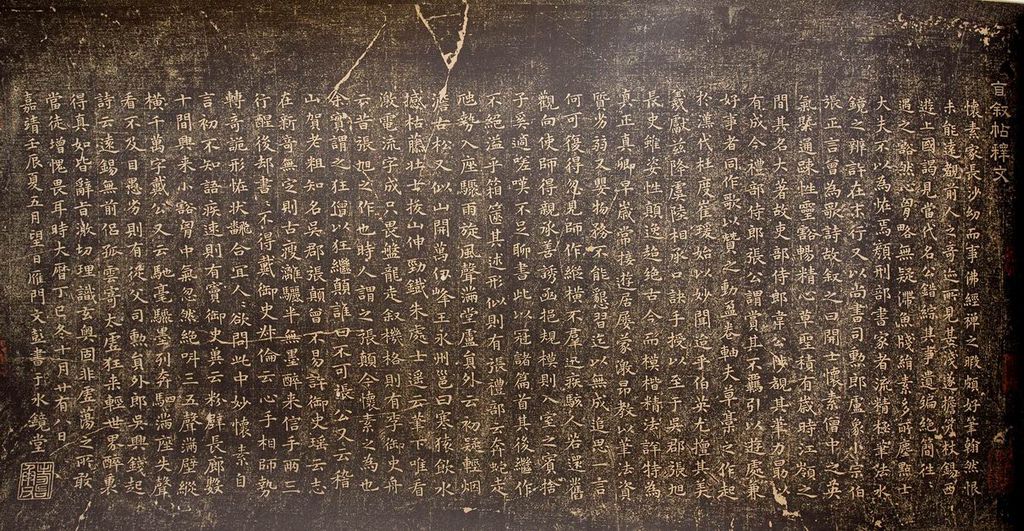 自叙帖釋文
懷素家長沙幼而事佛經禪之暇頗好筆翰然恨
未能遠覩前人之奇迹所見甚淺遂擔笈杖錫西
遊上國謁見當代名公錯綜其事遺編絶簡往往
遇之豁然心胷略無疑滯魚牋絹素多所塵點士
大夫不以為恠焉顔刑部書家者流精極筆法水
鏡之辨許在末行又以尚書司勳郎盧象小宗伯
張正言曾為歌詩故叙之曰開士懷素僧中之英
氣槩通疎性靈豁暢精心草聖積有歲時江嶺之
間其名大著故吏部侍郎韋公陟覩其筆力勗以
有成今禮部侍郎張公謂賞其不羈引以遊處兼
好事者同作歌以贊之動盈卷軸夫草藁之作起
於漢代杜度崔瑗始以妙聞迨乎伯英尤擅其美
羲獻茲降虞陸相承口訣手授以至于吳郡張旭
長史雖姿性顛逸超絶古今而模楷精法詳特為
真正真卿早歲常接遊居屢蒙激昂教以筆法資
質劣弱又嬰物務不能懇習迄以無成追思一言
何可復得忽見師作縱橫不羣迅疾駭人若還舊
觀向使師得親承善誘函挹規模則入室之賓捨
子奚適嗟嘆不足聊書此以冠諸篇首其後繼作
不絶溢乎箱篋其述形似則有張禮部云奔蛇走
虺勢入座驟雨旋風聲滿堂盧員外云初疑輕烟
澹古松又似山開萬仞峰王永州邕曰寒猿飲水
撼枯藤壯士拔山伸勁鐵朱處士遥云筆下唯看
激電流字成只畏盤龍走叙機格則有李御史舟
云昔張旭之作也時人謂之張顛今懷素之為也
余實謂之狂僧以狂繼顛誰曰不可張公又云稽
山賀老粗知名吳郡張顛曾不易許御史瑶云志
在新奇無定則古瘦灕驪半無墨醉来信手兩三
行醒後却書書不得戴御史叔倫云心手相師勢
轉奇詭形恠狀飜合宜人人欲問此中妙懷素自
言初不知語疾速則有竇御史兾云粉壁長廊數
十間興来小豁胷中氣忽然絶叫三五聲滿壁縱
橫千萬字戴公又云馳毫驟墨列奔駟滿座失聲
看不及目愚劣則有從父司勳員外郎吳興錢起
詩云遠錫無前侣孤雲寄太虚狂来輕世界醉裏
得真如皆辭旨激切理識玄奥固非虚蕩之所敢
當徒增愧畏耳時大曆丁巳冬十月廿有八日
嘉靖壬辰夏五月望日雁門文彭書于水鏡堂